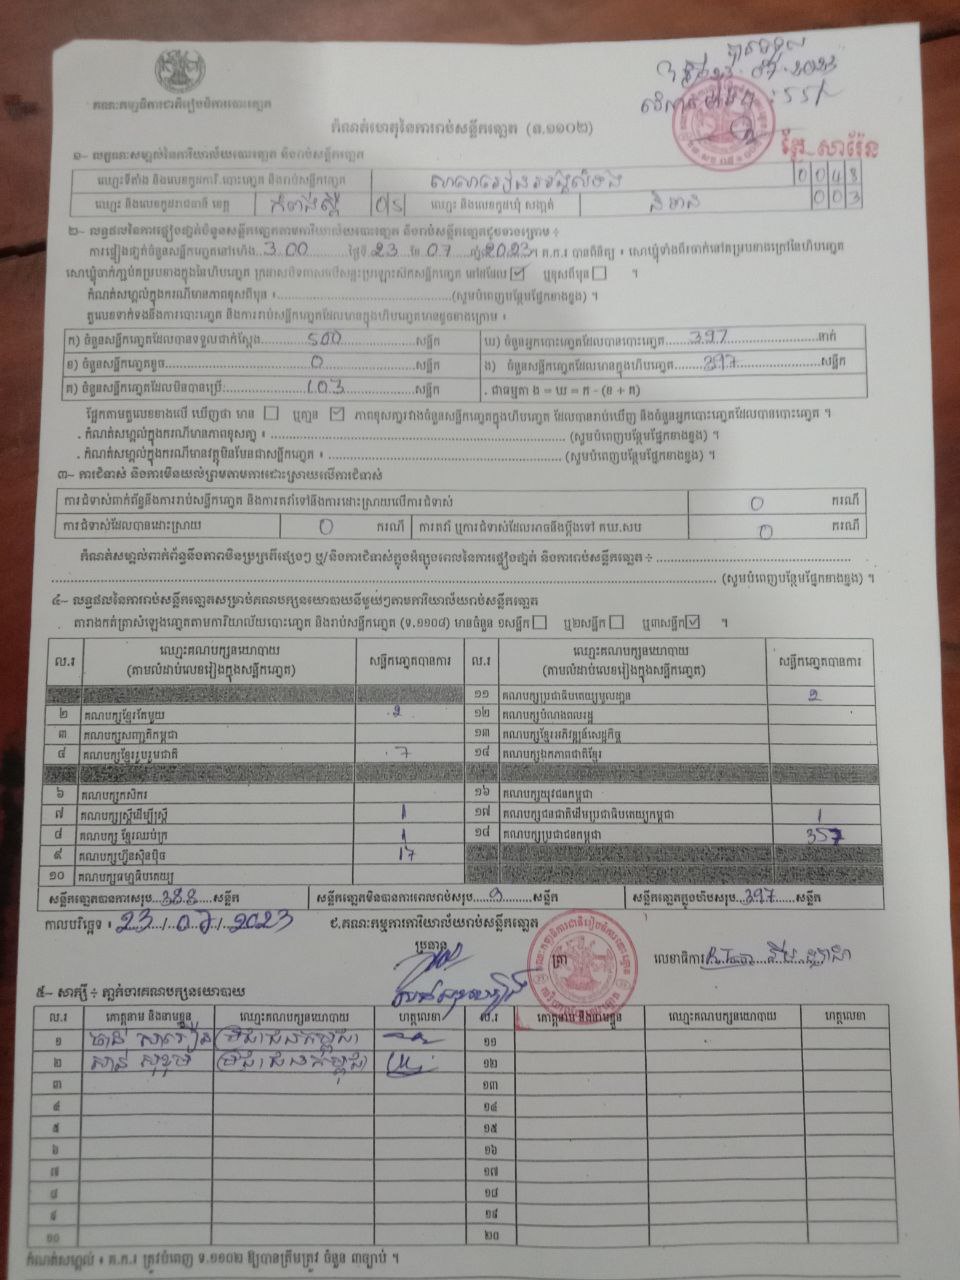 គណៈកម្មាធិការជាតិរៀបចំការបោះឆ្នោត
កំណត់ហេតុនៃការរាប់សន្លឹកឆ្នោត (ទ.១១០២)
១~ លក្ខណៈសម្គាល់នៃការិយាល័យបោះឆ្នោត និងរាប់សន្លឹកឆ្នោត
ឈ្មោះទីតាំង និងលេខកូដការិ.បោះឆ្នោត និងរាប់សន្លឹកឆ្នោត 0048
ឈ្មោះ និងលេខកូដរាជធានី ខេត្ត កំពង់ស្ពឺ 05 ឈ្មោះ និងលេខកូដឃុំ សង្កាត់ 003
២~ លទ្ធផលនៃការផ្ទៀងផ្ទាត់ចំនួនសន្លឹកឆ្នោតតាមការិយាល័យបោះឆ្នោត និងរាប់សន្លឹកឆ្នោតដូចខាងក្រោម ៖
ការផ្ទៀងផ្ទាត់ចំនួនសន្លឹកឆ្នោតនៅម៉ោង 3.00 ថ្ងៃទី 23 ខែ 07 ឆ្នាំ 2023 ។ គ.ក.រ បានពិនិត្យ ៖ សោឃ្មុំទាំងពីរចាក់នៅគម្របខាងក្រៅនៃហិបឆ្នោត
សោឃ្មុំចាក់ភ្ជាប់គម្របខាងក្នុងនៃហិបឆ្នោត ក្រដាសបិទពាសលើសន្ទះប្រឡោះស៊កសន្លឹកឆ្នោត នៅដដែល ☑ ឬខុសពីមុន ☐ ។
កំណត់សម្គាល់ក្នុងករណីមានភាពខុសពីមុន ៖ (សូមបំពេញបន្ថែមផ្នែកខាងខ្នង) ។
តួលេខទាក់ទងនឹងការបោះឆ្នោត និងការរាប់សន្លឹកឆ្នោតដែលមានក្នុងហិបឆ្នោតមានដូចខាងក្រោម ៖
ក) ចំនួនសន្លឹកឆ្នោតដែលបានទទួលជាក់ស្តែង 500 សន្លឹក ឃ) ចំនួនអ្នកបោះឆ្នោតដែលបានបោះឆ្នោត 397 នាក់
ខ) ចំនួនសន្លឹកឆ្នោតខូច 0 សន្លឹក ង) ចំនួនសន្លឹកឆ្នោតដែលមានក្នុងហិបឆ្នោត 397 សន្លឹក
គ) ចំនួនសន្លឹកឆ្នោតដែលមិនបានប្រើ: 103 សន្លឹក . ជាធម្មតា ង = ឃ = ក - (ខ + គ)
ផ្អែកតាមតួលេខខាងលើ ឃើញថា មាន ☐ ឬគ្មាន ☑ ភាពខុសគ្នារវាងចំនួនសន្លឹកឆ្នោតក្នុងហិបឆ្នោត ដែលបានរាប់ឃើញ និងចំនួនអ្នកបោះឆ្នោតដែលបានបោះឆ្នោត ។
. កំណត់សម្គាល់ក្នុងករណីមានភាពខុសគ្នា ៖ (សូមបំពេញបន្ថែមផ្នែកខាងខ្នង) ។
. កំណត់សម្គាល់ក្នុងករណីមានវត្ថុមិនមែនជាសន្លឹកឆ្នោត ៖ (សូមបំពេញបន្ថែមផ្នែកខាងខ្នង) ។
៣~ ការជំទាស់ និងការមិនយល់ព្រមតាមការដោះស្រាយលើការជំទាស់
ការជំទាស់ពាក់ព័ន្ធនឹងការរាប់សន្លឹកឆ្នោត និងការតវ៉ាទៅនឹងការដោះស្រាយលើការជំទាស់ 0 ករណី
ការជំទាស់ដែលបានដោះស្រាយ 0 ករណី ការតវ៉ា ឬការជំទាស់ដែលអាចនឹងប្តឹងទៅ គឃ.សប 0 ករណី
កំណត់សម្គាល់ពាក់ព័ន្ធនឹងភាពមិនប្រក្រតីផ្សេងៗ ឬ/និងការជំទាស់ក្នុងអំឡុងពេលនៃការផ្ទៀងផ្ទាត់ និងការរាប់សន្លឹកឆ្នោត ÷
(សូមបំពេញបន្ថែមផ្នែកខាងខ្នង) ។
៤~ លទ្ធផលនៃការរាប់សន្លឹកឆ្នោតសម្រាប់គណបក្សនយោបាយនីមួយៗតាមការិយាល័យរាប់សន្លឹកឆ្នោត
តារាងកត់ត្រាសំឡេងឆ្នោតតាមការិយាល័យបោះឆ្នោត និងរាប់សន្លឹកឆ្នោត (ទ.១១០៨) មានចំនួន ១សន្លឹក ☐ ឬ២សន្លឹក ☐ ឬ៣សន្លឹក ☑ ។
ល.រ ឈ្មោះគណបក្សនយោបាយ (តាមលំដាប់លេខរៀងក្នុងសន្លឹកឆ្នោត) សន្លឹកឆ្នោតបានការ ល.រ ឈ្មោះគណបក្សនយោបាយ (តាមលំដាប់លេខរៀងក្នុងសន្លឹកឆ្នោត) សន្លឹកឆ្នោតបានការ
១១ គណបក្សប្រជាធិបតេយ្យមូលដ្ឋាន 2
២ គណបក្សខ្មែរតែមួយ 2 ១២ គណបក្សបំណងពលរដ្ឋ
៣ គណបក្សសញ្ជាតិកម្ពុជា ១៣ គណបក្សខ្មែរអភិវឌ្ឍន៍សេដ្ឋកិច្ច
៤ គណបក្សខ្មែររួបរួមជាតិ 7 ១៤ គណបក្សឯកភាពជាតិខ្មែរ
៦ គណបក្សកសិករ ១៦ គណបក្សយុវជនកម្ពុជា
៧ គណបក្សស្ត្រីដើម្បីស្ត្រី 1 ១៧ គណបក្សជនជាតិដើមប្រជាធិបតេយ្យកម្ពុជា 1
៨ គណបក្ស ខ្មែរឈប់ក្រ 1 ១៨ គណបក្សប្រជាជនកម្ពុជា 357
៩ គណបក្សហ៊្វុនស៊ិនប៉ិច 17
១០ គណបក្សធម្មាធិបតេយ្យ
សន្លឹកឆ្នោតបានការសរុប 388 សន្លឹក សន្លឹកឆ្នោតមិនបានការពេលរាប់សរុប 9 សន្លឹក សន្លឹកឆ្នោតក្នុងហិបសរុប 397 សន្លឹក
កាលបរិច្ឆេទ ៖ 23/07/2023 ជ.គណៈកម្មការការិយាល័យរាប់សន្លឹកឆ្នោត
ប្រធាន ត្រា លេខាធិការ
៥~ សាក្សី ÷ ភ្នាក់ងារគណបក្សនយោបាយ
ល.រ គោត្តនាម និងនាមខ្លួន ឈ្មោះគណបក្សនយោបាយ ហត្ថលេខា ល.រ គោត្តនាម និងនាមខ្លួន ឈ្មោះគណបក្សនយោបាយ ហត្ថលេខា
១ ប្រជាជនកម្ពុជា ១១
២ ប្រជាជនកម្ពុជា ១២
៣ ១៣
៤ ១៤
៥ ១៥
៦ ១៦
៧ ១៧
៨ ១៨
៩ ១៩
១០ ២០
កំណត់សម្គាល់ ៖ គ.ក.រ ត្រូវបំពេញ ទ.១១០២ ឱ្យបានត្រឹមត្រូវ ចំនួន ៣ច្បាប់ ។